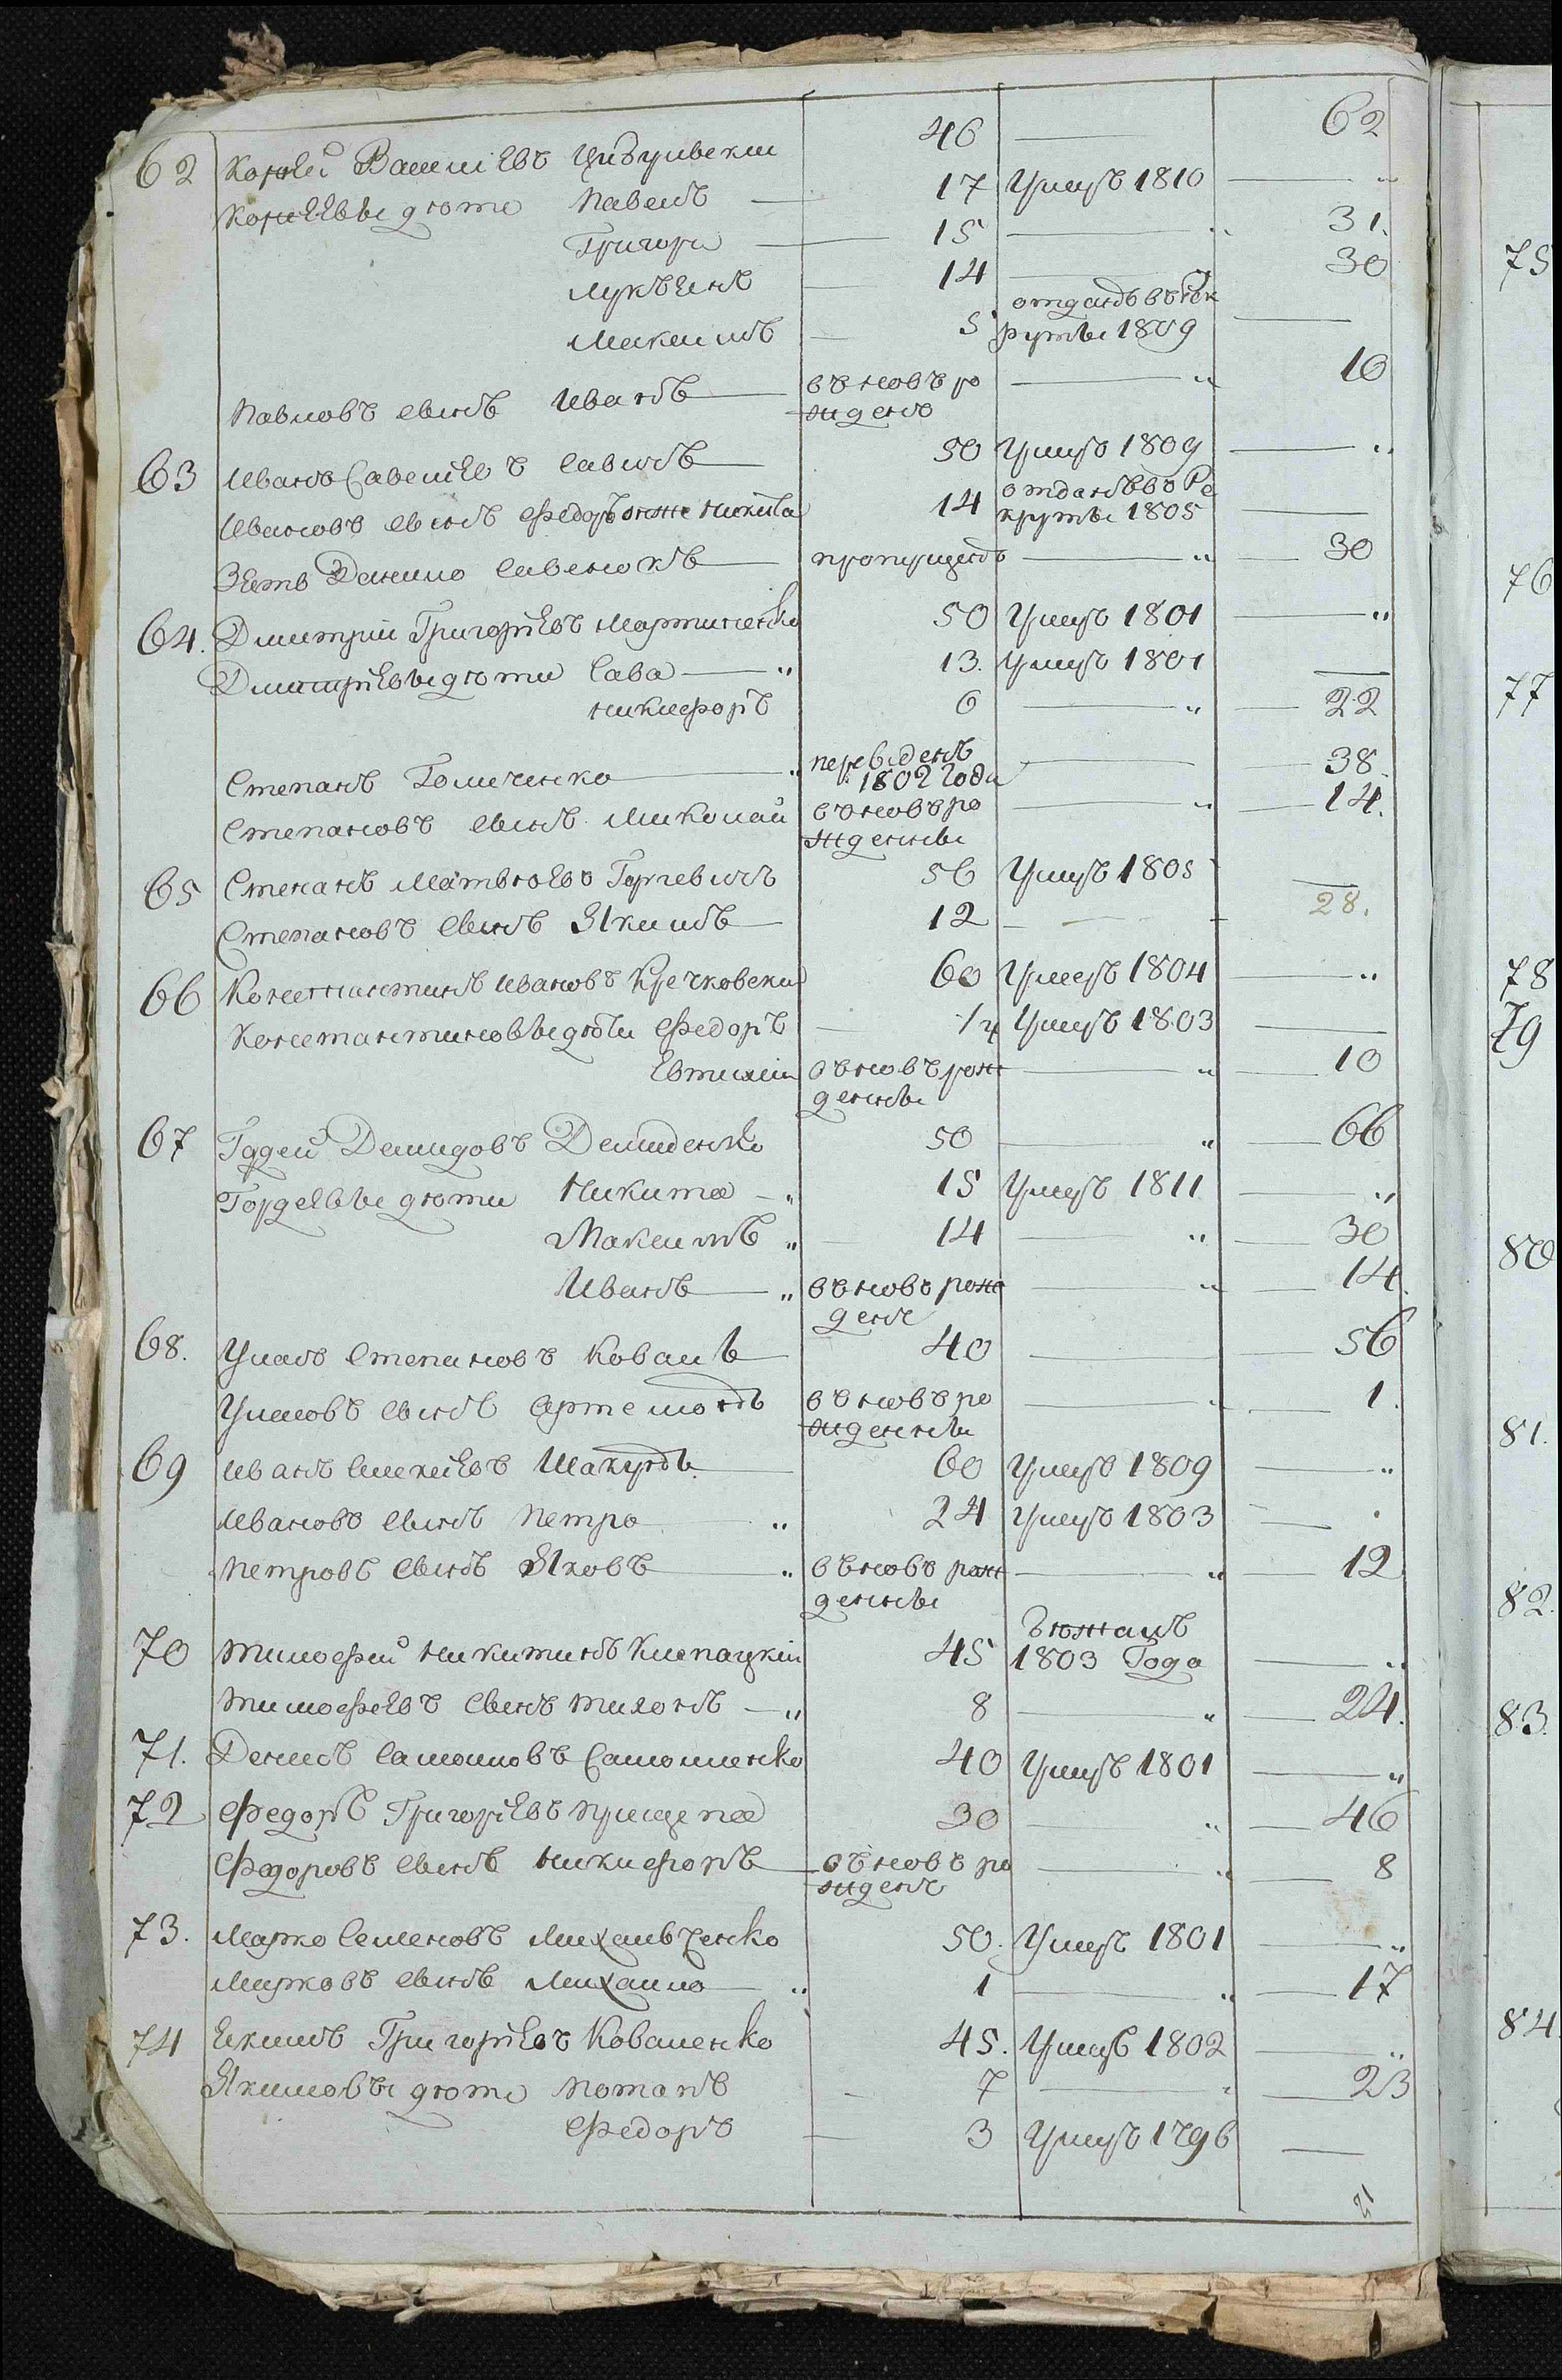 62 Корней Василіевъ Цибулвскій 46 — 62
Корнеевы дѣти Павелъ — 17 Умеръ 1810 — "
Григори — 15 — " 31.
Лукъенъ — 14 — " 30
Максимъ — 5 отданъ въ рек
руты 1809 —
Павловъ сынъ Иванъ — въновъ ро — " 10
жденъ
63 Иванъ Савеліевъ Савичъ — 50 Умеръ 1809 — "
Ивановъ сынъ Федоръ онже Никита 14 отданъ въ Ре
круты 1805 —
Зять Данило Савенокъ — пропущенъ — " — 30
64. Дмитрій Григоріевъ Мартиненко 50 Умеръ 1801 — "
Дмитріевы дѣти Сава — " 13. Умеръ 1801 —
Никифоръ 6 — " — 22
Степанъ Гомиченко — " переведенъ
1802 Года — — 38.
Степановъ сынъ Миколай въновъ ро — " — 14.
жденны
65 Степанъ Матвѣевъ Горгевичъ 56 Умеръ 1805 —
Степановъ сынъ Якимъ — 12 — 28.
66 Константинъ Ивановъ Кречковски 60 Умеръ 1804 — "
Константиновы дѣти Федоръ — 14 Умеръ 1803 —
Евтихій въновъ рож — " — 10
денны
67 Гордей Демидовъ Демиденко 50 — " — 66
Гордеевы дѣти Никита — " 15 Умеръ 1811 — "
Максимъ " — 14 — " — 30
Иванъ — " въновъ рож — " — 14.
денъ
68. Уласъ Степановъ Коваль — 40 — — 56
Уласовъ сынъ Артемонъ въновъ ро — " — 1.
жденны
69 Иванъ Алексіевъ Шакунъ. — 60 Умеръ 1809 — "
Ивановъ сынъ Петро — " 24 Умеръ 1803 — "
Петровъ сынъ Яковъ — " въновъ рож — " — 12
денны
70 Тимофей Никитинъ Кислацкій 45 Бѣжалъ
1803 Года — "
Тимофеевъ сынъ Тихонъ — " 8 — " — 24.
71. Денисъ Самоиловъ Самоиленко 40 Умеръ 1801 — "
72 Федоръ Григоріевъ Прищепа 30 — " — 46
Федоровъ сынъ Никифоръ — въновъ ро — " — 8
жденъ
73. Марко Семеновъ Михайвченко 50. Умеръ 1801 — "
Марковъ сынъ Михаило — " 1 — " — 17
74 Екимъ Григоріевъ Коваленко 45. Умеръ 1802 — "
Якимовы дѣти Потапъ — 7 — " — 23
Федоръ — 3 Умеръ 1796 —
75
76
77
78
79
80
81.
82.
83.
84.